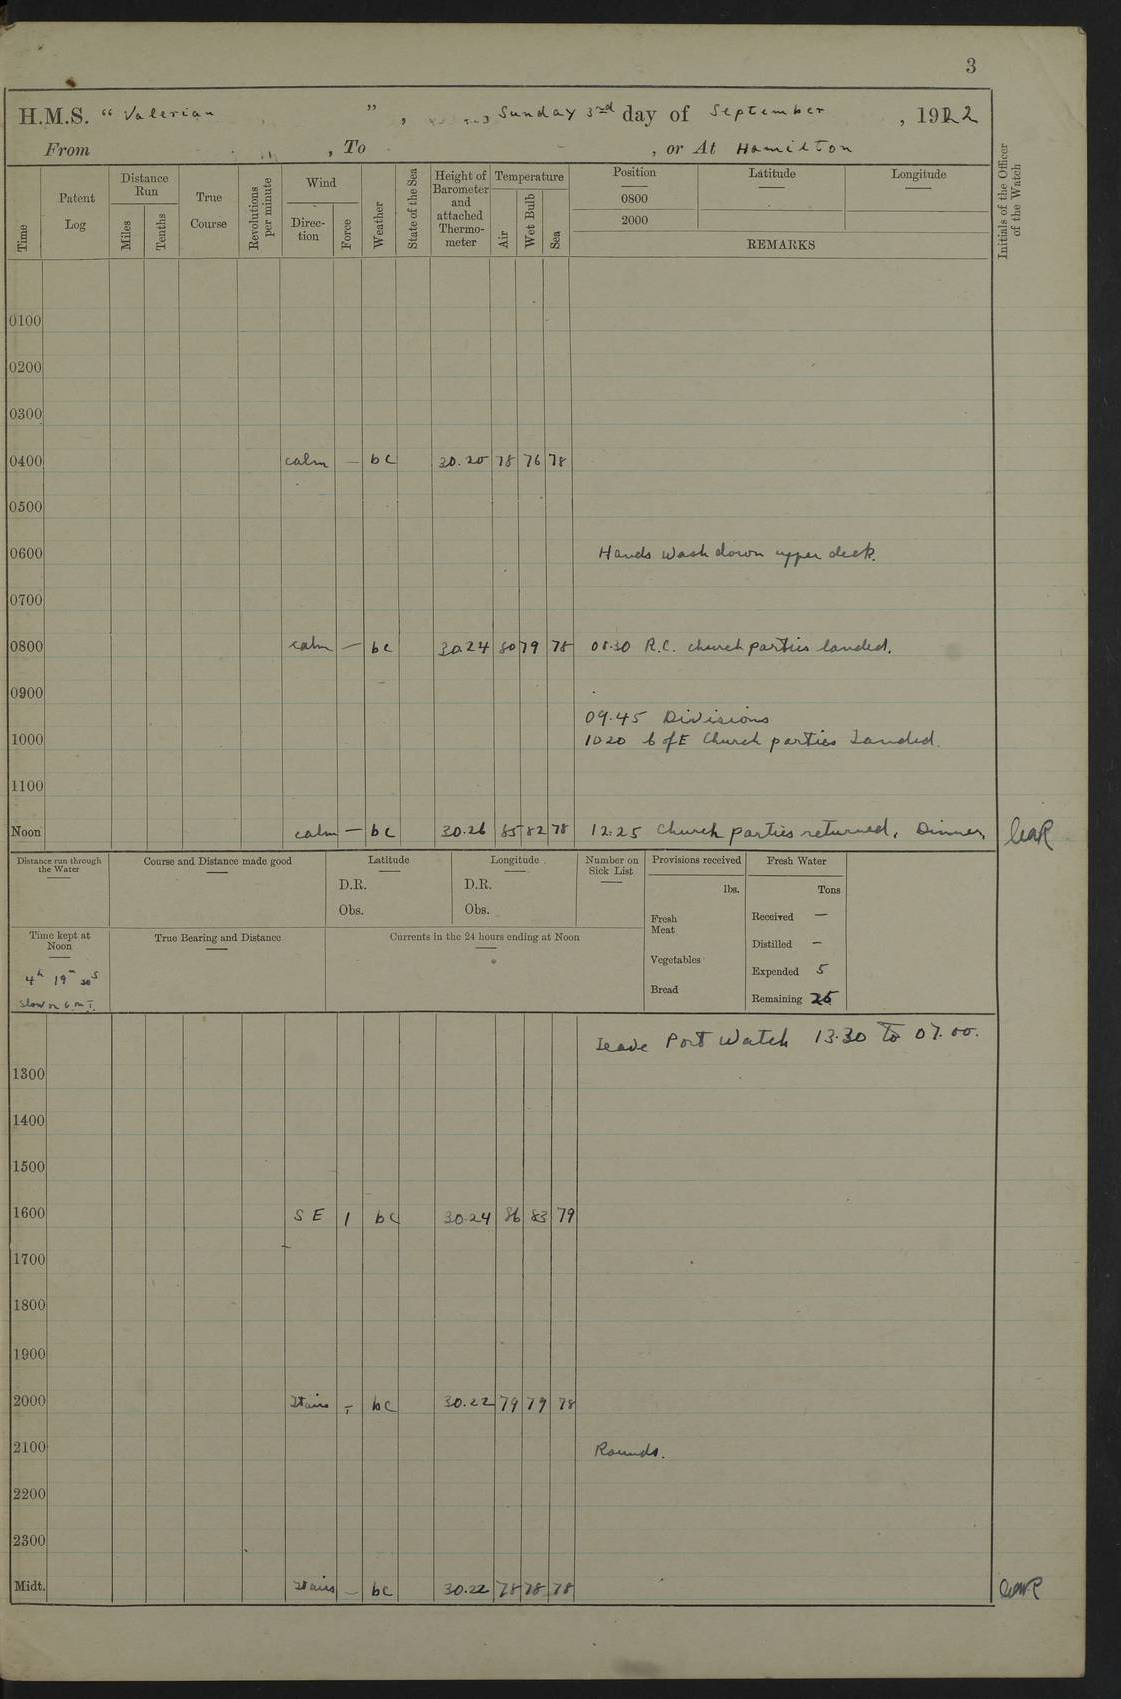 3
H.M.S. "Valerian", Sunday 3rd day of September, 1922
From , To , or At Hamilton
Time
Patent Log
Distance Run
Miles
Tenths
True Course
Revolutions per minute
Wind
Direction
Force
Weather
State of the Sea
Height of Barometer and attached Thermometer
Temperature
Air
Wet Bulb
Sea
Position
0800
2000
Latitude
Longitude
REMARKS
Initials of the Officer of the Watch
0100
0200
0300
0400 calm — bc 30.20 78 76 78
0500
0600 Hands wash down upper deck.
0700
0800 calm — bc 30.24 80 79 78 08.30 R.C. church parties landed.
0900
09.45 Divisions
1000 1020 C of E Church parties Landed.
1100
Noon calm — bc 30.26 85 82 78 12.25 Church parties returned, Dinner
Distance run through the Water
Course and Distance made good
Latitude
D.R.
Obs.
Longitude
D.R.
Obs.
Number on Sick List
Provisions received
lbs.
Fresh Meat
Vegetables
Bread
Fresh Water
Tons
Received —
Distilled —
Expended 5
Remaining 25
Time kept at Noon
4h 19m 30s
Slow on G.M.T.
True Bearing and Distance
Currents in the 24 hours ending at Noon
Leave Port Watch 13.30 to 07.00.
1300
1400
1500
1600 S E 1 bc 30.24 86 83 79
1700
1800
1900
2000 - bc 30.22 79 79 78
2100 Rounds.
2200
2300
Midt. — bc 30.22 78 78 78